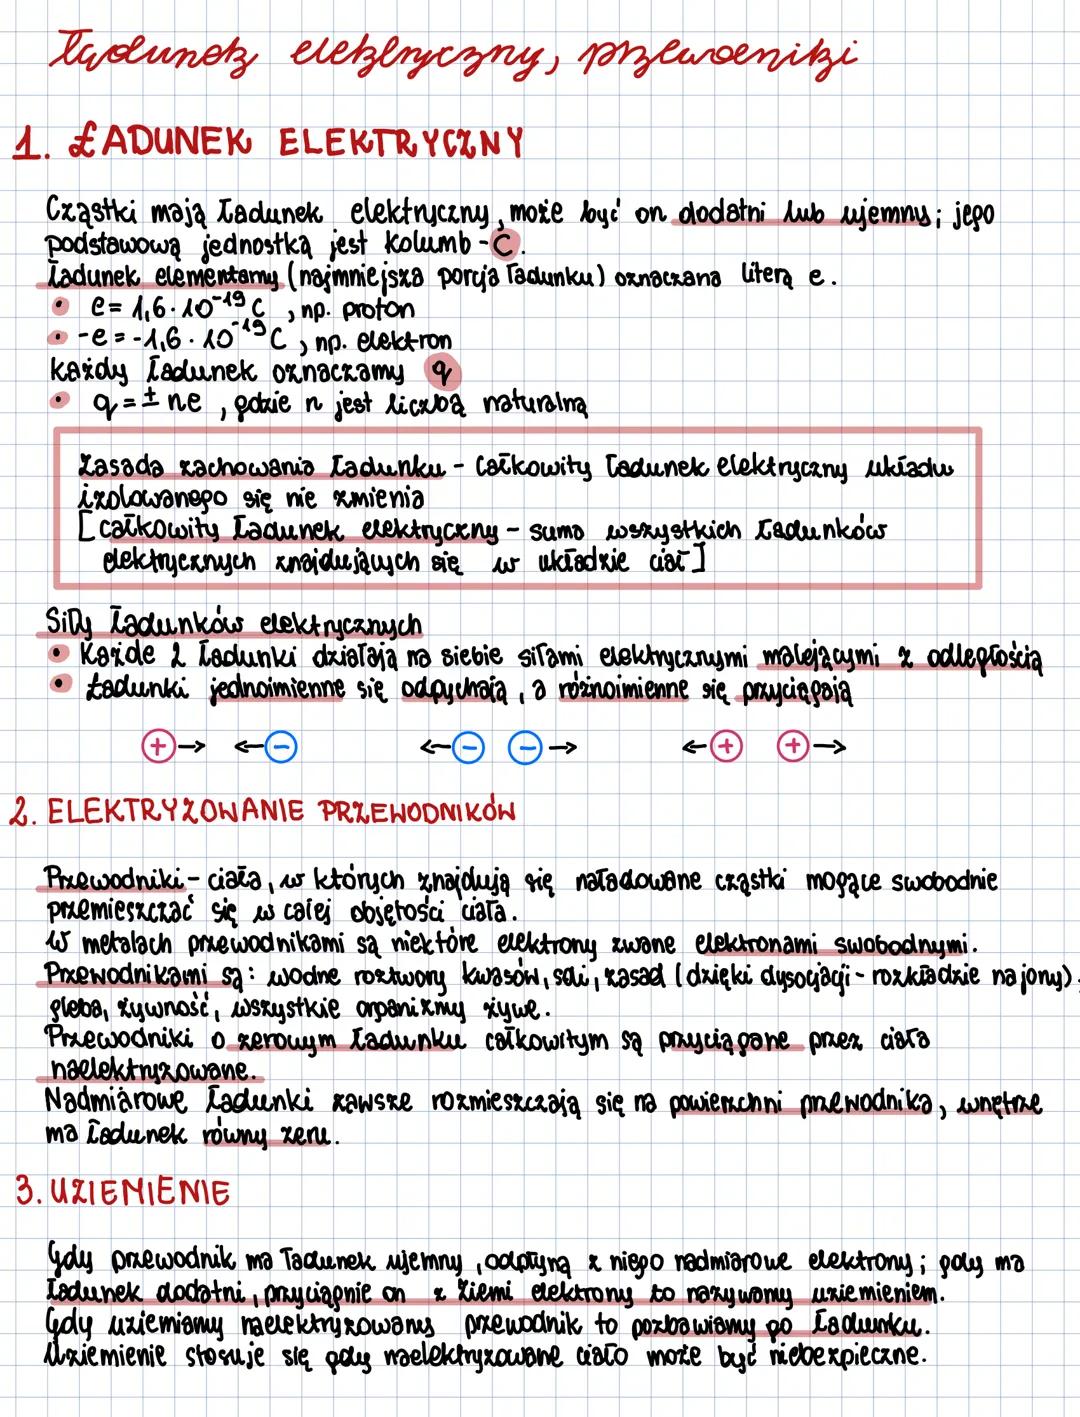 Ładunek elektryczny, przewodniki
1. ŁADUNEK ELEKTRYCZNY
Cząstki mają ładunek elektryczny, może być on dodatni lub ujemny; jego
podstawową jednostką jest kolumb - C.
Ładunek elementarny (najmniejsza porcja ładunku) oznaczana literą e.
• e = 1,6 · 10⁻¹⁹ C, np. proton
• -e = -1,6 · 10⁻¹⁹ C, np. elektron
każdy ładunek oznaczamy q
• q = ± ne, gdzie n jest liczbą naturalną
Zasada zachowania ładunku - całkowity ładunek elektryczny układu
izolowanego się nie zmienia
[całkowity ładunek elektryczny - suma wszystkich ładunków
elektrycznych znajdujących się w układzie ciał]
Siły ładunków elektrycznych
• Każde 2 ładunki działają na siebie siłami elektrycznymi malejącymi z odległością
• Ładunki jednoimienne się odpychają, a różnoimienne się przyciągają
+ → ← - ← - - → ← + + →
2. ELEKTRYZOWANIE PRZEWODNIKÓW
Przewodniki - ciała, w których znajdują się naładowane cząstki mogące swobodnie
przemieszczać się w całej objętości ciała.
W metalach przewodnikami są niektóre elektrony zwane elektronami swobodnymi.
Przewodnikami są: wodne roztwory kwasów, soli, zasad (dzięki dysocjacji - rozkładzie na jony),
gleba, żywność, wszystkie organizmy żywe.
Przewodniki o zerowym ładunku całkowitym są przyciągane przez ciała
naelektryzowane.
Nadmiarowe ładunki zawsze rozmieszczają się na powierzchni przewodnika, wnętrze
ma ładunek równy zeru.
3. UZIEMIENIE
Gdy przewodnik ma ładunek ujemny, odpłyną z niego nadmiarowe elektrony; gdy ma
ładunek dodatni, przyciągnie on z Ziemi elektrony to nazywamy uziemieniem.
Gdy uziemiamy naelektryzowany przewodnik to pozbawiamy go ładunku.
Uziemienie stosuje się gdy naelektryzowane ciało może być niebezpieczne.